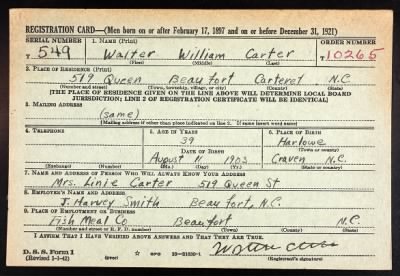 REGISTRATION CARD—(Men born on or after February 17, 1897 and on or before December 31, 1921)
SERIAL NUMBER 1. NAME (Print) ORDER NUMBER
T 549 Walter William Carter T 10265
(First) (Middle) (Last)
2. PLACE OF RESIDENCE (Print)
519 Queen Beaufort Carteret N.C.
(Number and street) (Town, township, village, or city) (County) (State)
[THE PLACE OF RESIDENCE GIVEN ON THE LINE ABOVE WILL DETERMINE LOCAL BOARD
JURISDICTION; LINE 2 OF REGISTRATION CERTIFICATE WILL BE IDENTICAL]
3. MAILING ADDRESS
(same)
[Mailing address if other than place indicated on line 2. If same insert word same]
4. TELEPHONE 5. AGE IN YEARS 6. PLACE OF BIRTH
39 Harlowe
DATE OF BIRTH (Town or county)
August 11 1903 Craven N.C.
(Exchange) (Number) (Mo.) (Day) (Yr.) (State or country)
7. NAME AND ADDRESS OF PERSON WHO WILL ALWAYS KNOW YOUR ADDRESS
Mrs. Linie Carter 519 Queen St
8. EMPLOYER'S NAME AND ADDRESS
J. Harvey Smith Beaufort, N.C.
9. PLACE OF EMPLOYMENT OR BUSINESS
Fish Meal Co Beaufort N.C.
(Number and street or R. F. D. number) (Town) (County) (State)
I AFFIRM THAT I HAVE VERIFIED ABOVE ANSWERS AND THAT THEY ARE TRUE.
D. S. S. Form 1
(Revised 1-1-42) (over) GPO 16—21630-1 (Registrant's signature)